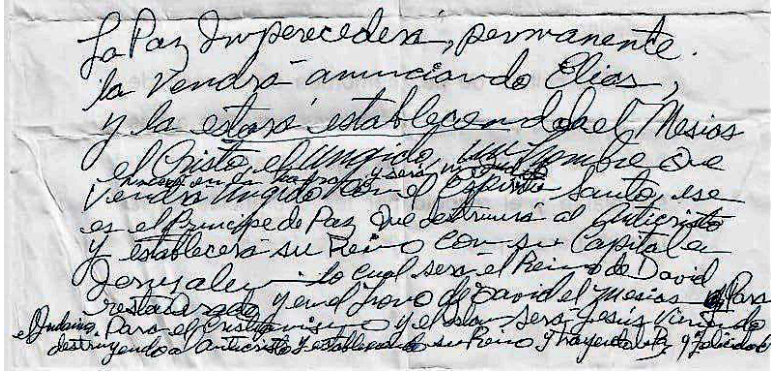 La Paz Imperecedera, permanente.
la vendrá anunciando Elías,
y la estará estableciendola el Mesías
el Cristo, el Ungido, un hombre que
nacerá en la
y será
vendrá Ungido con el Espíritu Santo, ese
es el Principe de Paz que destruirá al anticristo
y establecerá su Reino con su Capital en
Jerusalen lo cual será el Reino de David
restaurado y en el Trono de David el Mesías Para
el Judaismo, Para el Cristianismo y el Islam será Jesús Viniendo
destruyendo al anticristo y estableciendo su Reino y trayendo la Paz y felicidad